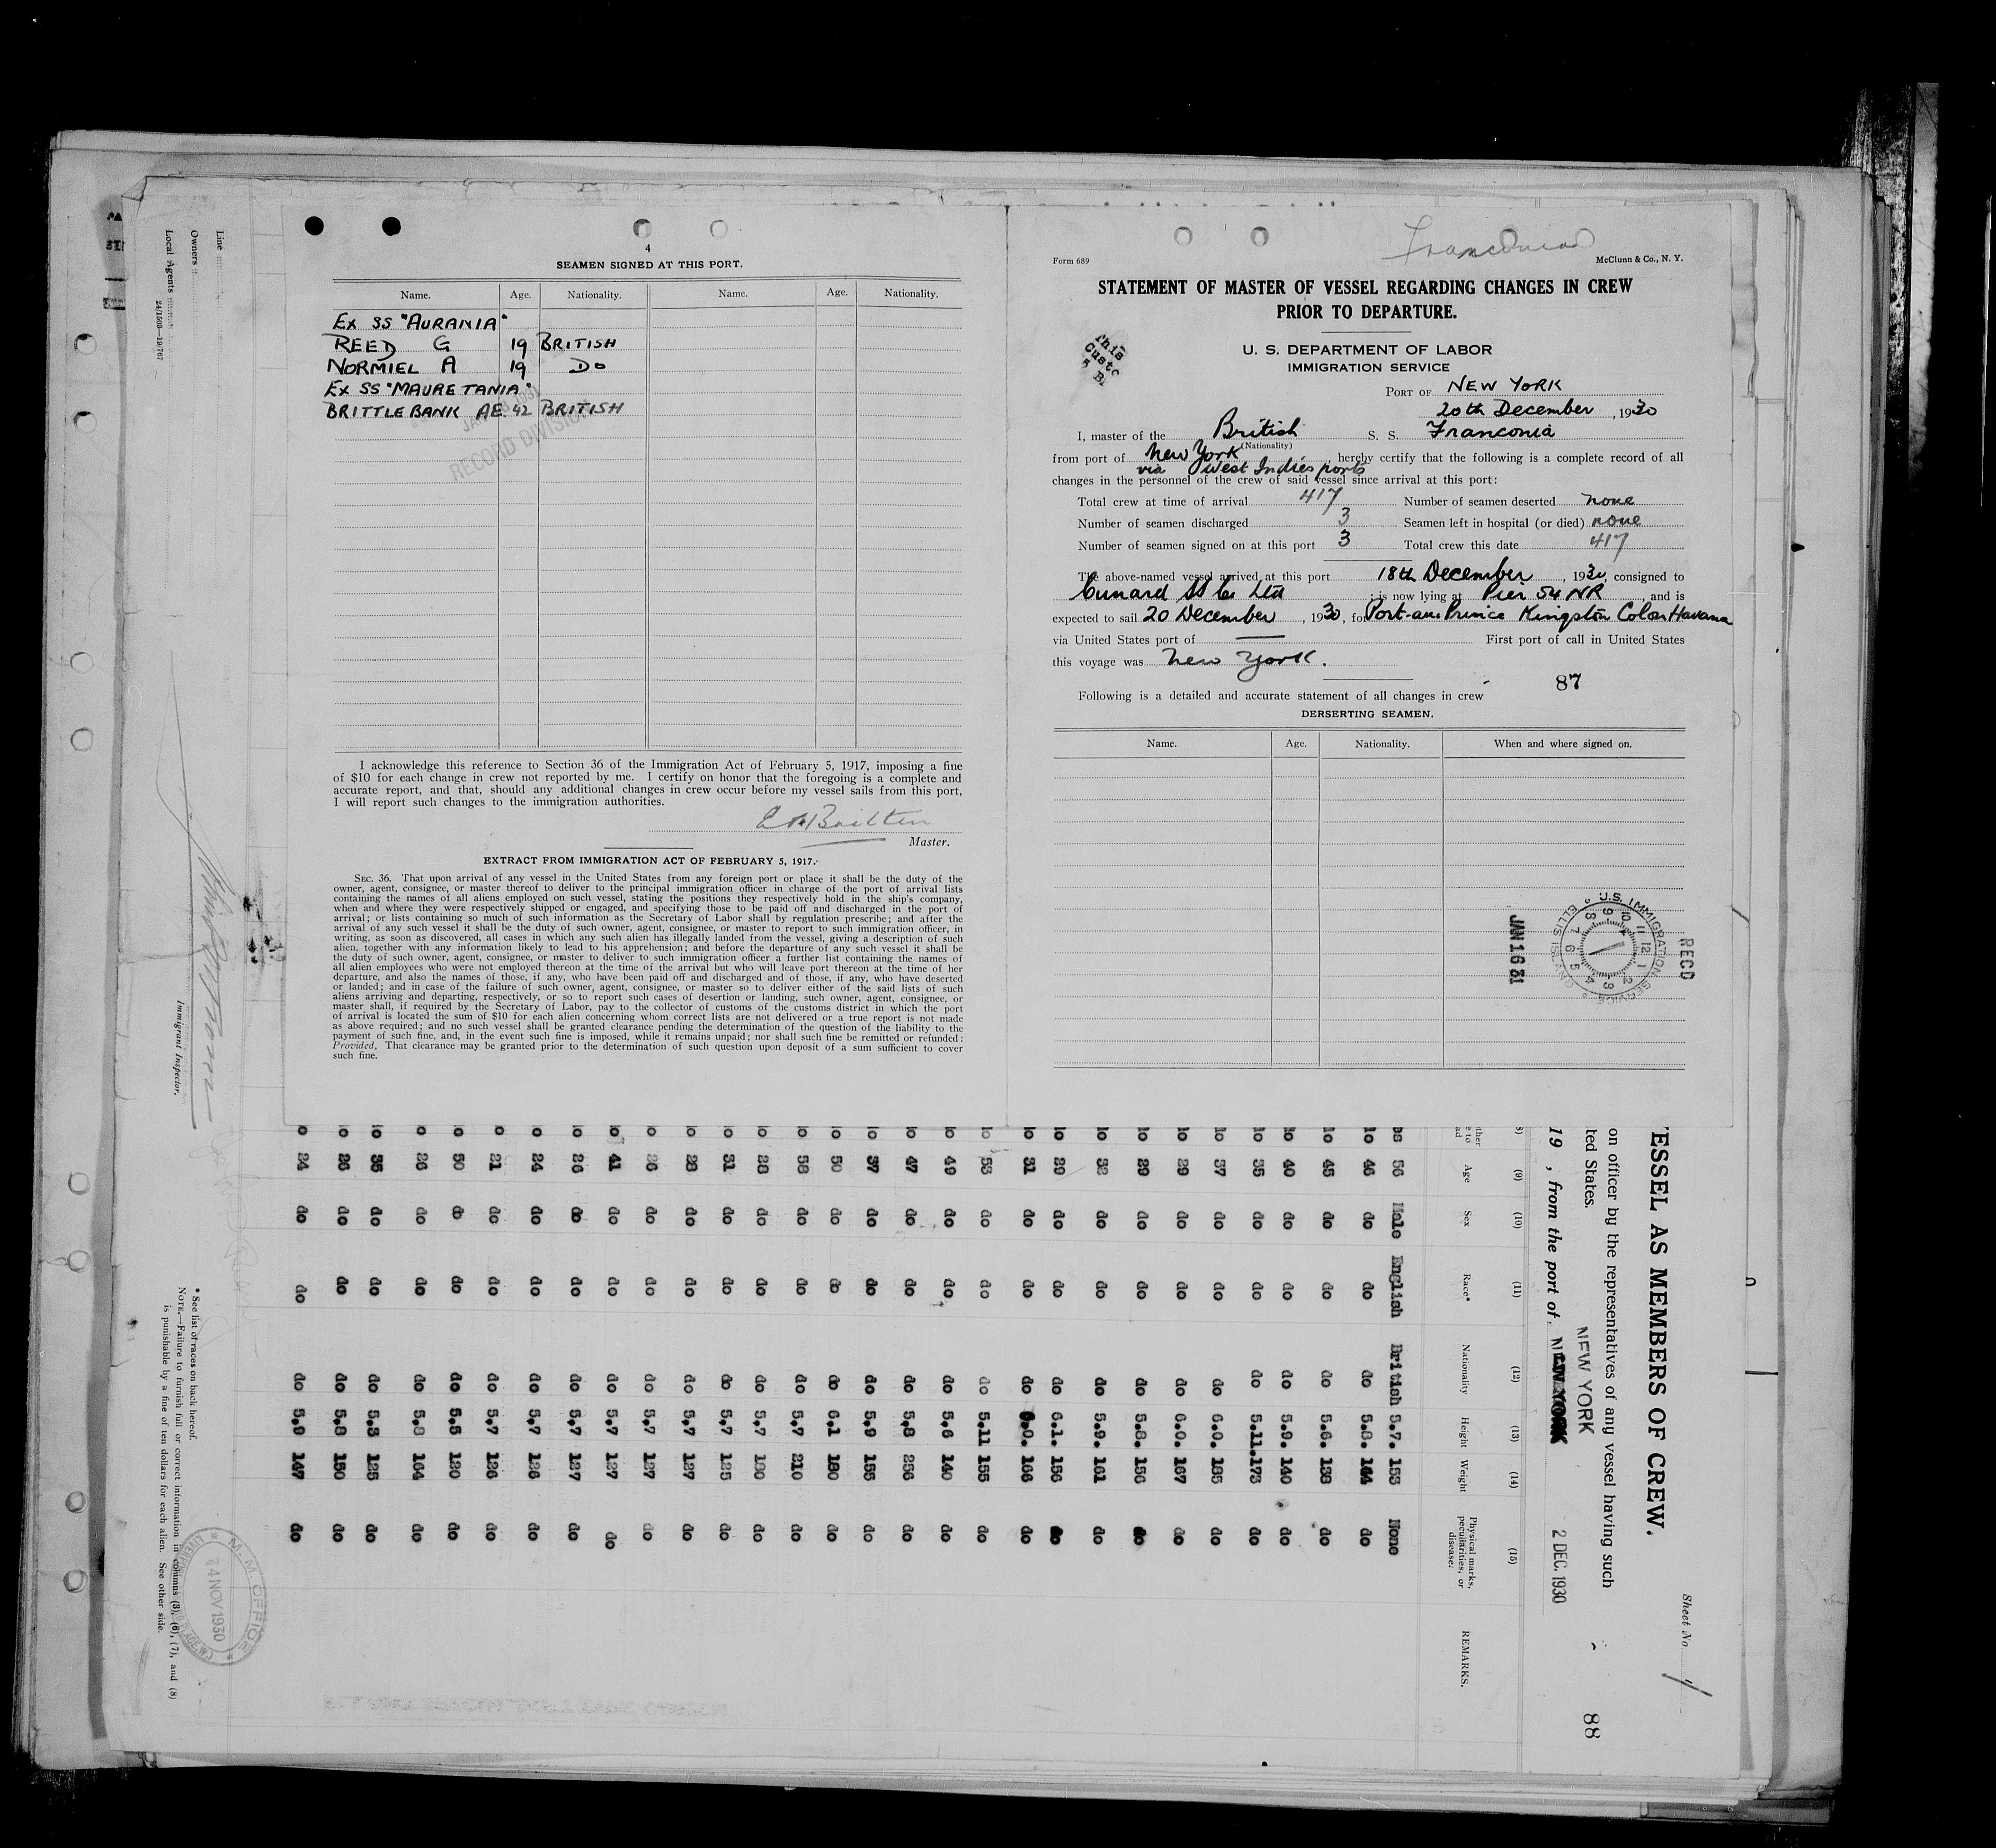 4
SEAMEN SIGNED AT THIS PORT.
Name. Age. Nationality. Name. Age. Nationality.
EX SS "AURANIA"
REED G 19 BRITISH
NORMIEL A 19 DO
EX SS "MAURETANIA"
BRITTLEBANK AE. 42 BRITISH
RECORD DIVISION
I acknowledge this reference to Section 36 of the Immigration Act of February 5, 1917, imposing a fine
of $10 for each change in crew not reported by me. I certify on honor that the foregoing is a complete and
accurate report, and that, should any additional changes in crew occur before my vessel sails from this port,
I will report such changes to the immigration authorities.
Master.
EXTRACT FROM IMMIGRATION ACT OF FEBRUARY 5, 1917.
SEC. 36. That upon arrival of any vessel in the United States from any foreign port or place it shall be the duty of the
owner, agent, consignee, or master thereof to deliver to the principal immigration officer in charge of the port of arrival lists
containing the names of all aliens employed on such vessel, stating the positions they respectively hold in the ship's company,
when and where they were respectively shipped or engaged, and specifying those to be paid off and discharged in the port of
arrival; or lists containing so much of such information as the Secretary of Labor shall by regulation prescribe; and after the
arrival of any such vessel it shall be the duty of such owner, agent, consignee, or master to report to such immigration officer, in
writing, as soon as discovered, all cases in which any such alien has illegally landed from the vessel, giving a description of such
alien, together with any information likely to lead to his apprehension; and before the departure of any such vessel it shall be
the duty of such owner, agent, consignee, or master to deliver to such immigration officer a further list containing the names of
all alien employees who were not employed thereon at the time of the arrival but who will leave port thereon at the time of her
departure, and also the names of those, if any, who have been paid off and discharged and of those, if any, who have deserted
or landed; and in case of the failure of such owner, agent, consignee, or master so to deliver either of the said lists of such
aliens arriving and departing, respectively, or so to report such cases of desertion or landing, such owner, agent, consignee, or
master shall, if required by the Secretary of Labor, pay to the collector of customs of the customs district in which the port
of arrival is located the sum of $10 for each alien concerning whom correct lists are not delivered or a true report is not made
as above required; and no such vessel shall be granted clearance pending the determination of the question of the liability to the
payment of such fine, and, in the event such fine is imposed, while it remains unpaid; nor shall such fine be remitted or refunded:
Provided, That clearance may be granted prior to the determination of such question upon deposit of a sum sufficient to cover
such fine.
Franconia
Form 689 McClunn & Co., N. Y.
STATEMENT OF MASTER OF VESSEL REGARDING CHANGES IN CREW
PRIOR TO DEPARTURE.
This
Custo
U. S. DEPARTMENT OF LABOR
IMMIGRATION SERVICE
PORT OF NEW YORK
20th December, 1930
I, master of the British S. S. Franconia
(Nationality)
from port of New York, hereby certify that the following is a complete record of all
via West Indies ports
changes in the personnel of the crew of said vessel since arrival at this port:
Total crew at time of arrival 417 Number of seamen deserted none
Number of seamen discharged 3 Seamen left in hospital (or died) none
Number of seamen signed on at this port 3 Total crew this date 417
The above-named vessel arrived at this port 18th December, 1930, consigned to
Cunard SS Co Ltd; is now lying at Pier 54 NR, and is
expected to sail 20 December, 1930, for Port-au-Prince Kingston Colon Havana
via United States port of First port of call in United States
this voyage was New York.
87
Following is a detailed and accurate statement of all changes in crew
DERSERTING SEAMEN.
Name. Age. Nationality. When and where signed on.
JAN 16 31
U.S. IMMIGRATION SERVICE ELLIS ISLAND
RECD
Line
Owners
Local Agents
24/1503—19/767
Immigrant Inspector.
Sheet No. 1
88
ESSEL AS MEMBERS OF CREW.
on officer by the representatives of any vessel having such
ted States.
NEW YORK
19 , from the port of NEW YORK 2 DEC. 1930
(9) (10) (11) (12) (13) (14) (15)
Age Sex Race* Nationality Height Weight Physical marks, peculiarities, or disease. REMARKS.
56 Male English British 5.7. 153 None
46 do do do 5.8. 164 do
45 do do do 5.6. 138 do
40 do do do 5.9. 140 do
35 do do do 5.11. 173 do
37 do do do 6.0. 185 do
29 do do do 6.0. 167 do
29 do do do 5.8. 156 do
32 do do do 5.9. 161 do
29 do do do 6.1. 156 do
31 do do do 6.0. 166 do
53 do do do 5.11 155 do
49 do do do 5.6 140 do
47 do do do 5,8 256 do
37 do do do 5.9 155 do
50 do do do 6.1 180 do
58 do do do 5.7 210 do
28 do do do 5.7 130 do
31 do do do 5.7 125 do
28 do do do 5.7 127 do
26 do do do 5.7 127 do
41 do do do 5.7 127 do
26 do do do 5.7 127 do
24 do do do 5.7 126 do
21 do do do 5.7 126 do
50 do do do 5.5 120 do
26 do do do 5.8 164 do
35 do do do 5.3 125 do
26 do do do 5.8 150 do
24 do do do 5.9 147 do
* See list of races on back hereof.
NOTE.—Failure to furnish full or correct information in columns (3), (6), (7), and (8)
is punishable by a fine of ten dollars for each alien. See other side.
M. M. OFFICE
14 NOV 1930
LIVERPOOL